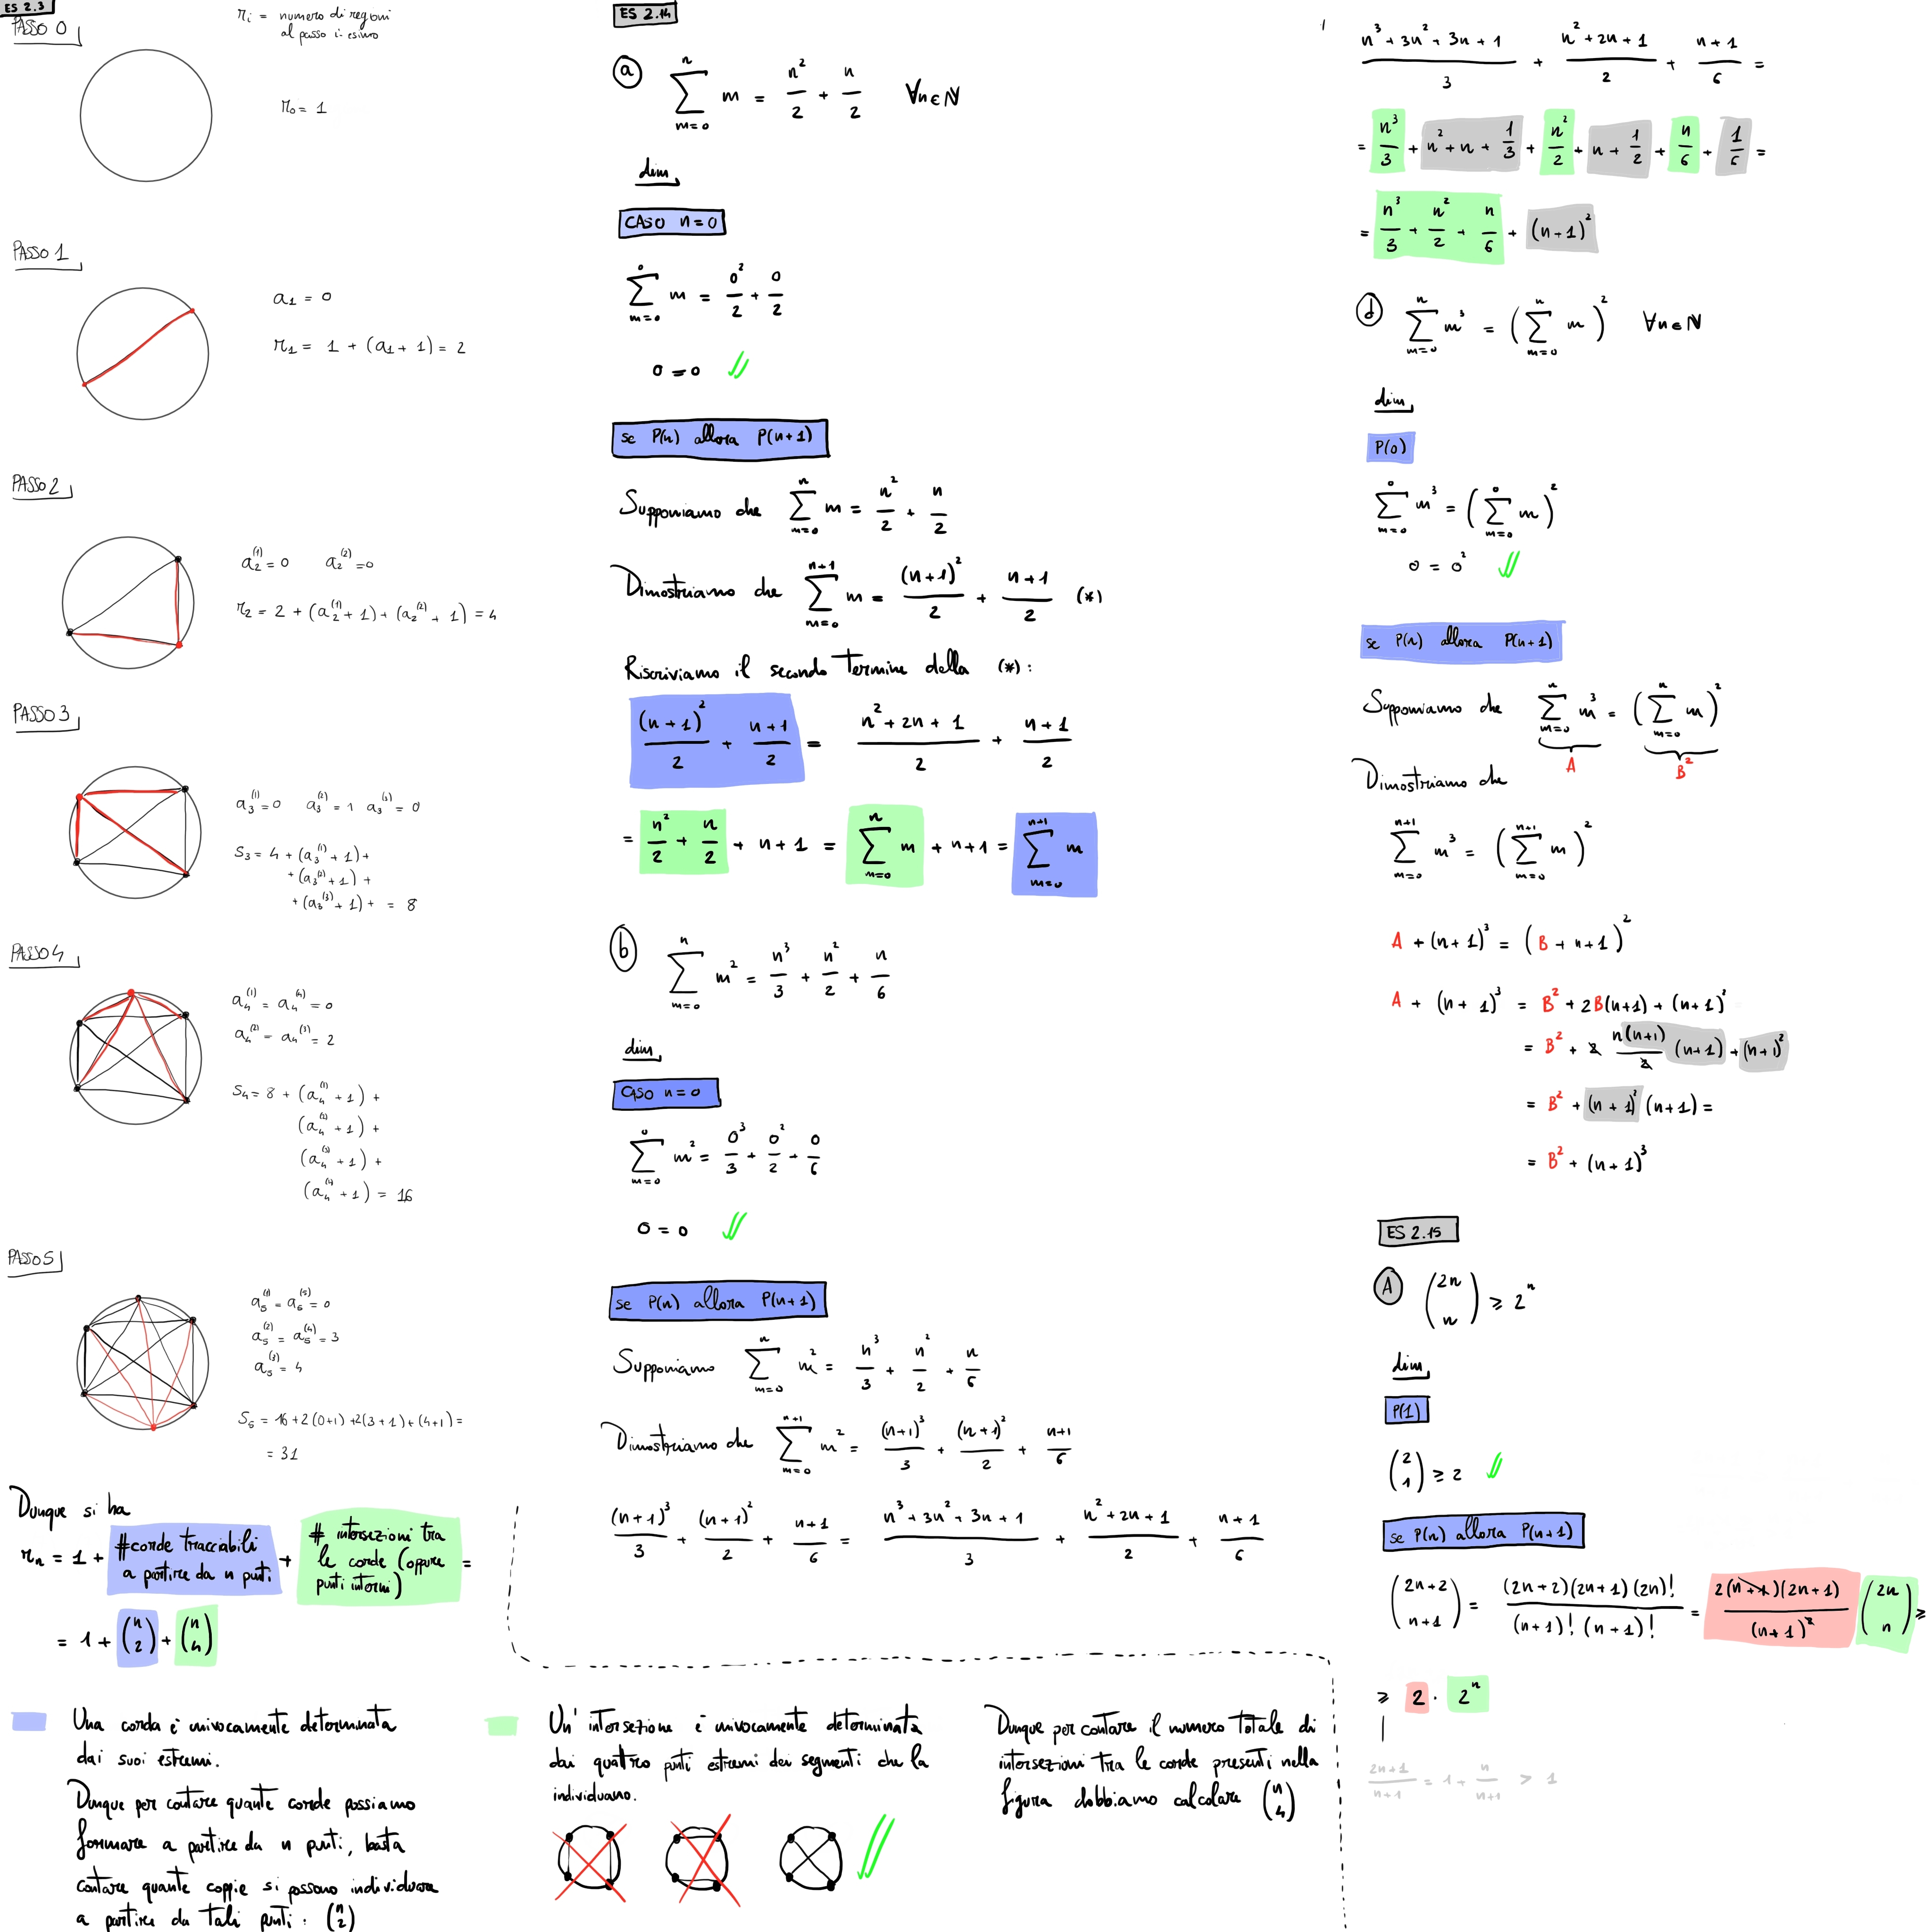 ES 2.3
PASSO 0
r_i = numero di regioni
al passo i-esimo
r_0 = 1
PASSO 1
a_1 = 0
r_1 = 1 + (a_1 + 1) = 2
PASSO 2
a_2^(1) = 0 a_2^(2) = 0
r_2 = 2 + (a_2^(1) + 1) + (a_2^(2) + 1) = 4
PASSO 3
a_3^(1) = 0 a_3^(2) = 1 a_3^(3) = 0
S_3 = 4 + (a_3^(1) + 1) +
+ (a_3^(2) + 1) +
+ (a_3^(3) + 1) + = 8
PASSO 4
a_4^(1) = a_4^(4) = 0
a_4^(2) = a_4^(3) = 2
S_4 = 8 + (a_4^(1) + 1) +
(a_4^(2) + 1) +
(a_4^(3) + 1) +
(a_4^(4) + 1) = 16
PASSO 5
a_5^(1) = a_5^(5) = 0
a_5^(2) = a_5^(4) = 3
a_5^(3) = 4
S_5 = 16 + 2(0+1) + 2(3+1) + (4+1) =
= 31
Dunque si ha
r_n = 1 + #corde tracciabili a partire da n punti + # intersezioni tra le corde (oppure punti interni) =
= 1 + (n 2) + (n 4)
Una corda è univocamente determinata
dai suoi estremi.
Dunque per contare quante corde possiamo
formare a partire da n punti, basta
contare quante coppie si possono individuare
a partire da tali punti: (n 2)
Un' intersezione è univocamente determinata
dai quattro punti estremi dei segmenti che la
individuano.
Dunque per contare il numero totale di
intersezioni tra le corde presenti nella
figura dobbiamo calcolare (n 4)
ES 2.14
a ∑_{m=0}^{n} m = n²/2 + n/2 ∀n∈ℕ
dim
CASO n=0
∑_{m=0}^{0} m = 0²/2 + 0/2
0 = 0
se P(n) allora P(n+1)
Supponiamo che ∑_{m=0}^{n} m = n²/2 + n/2
Dimostriamo che ∑_{m=0}^{n+1} m = (n+1)²/2 + n+1/2 (*)
Riscriviamo il secondo termine della (*):
(n+1)²/2 + n+1/2 = n²+2n+1/2 + n+1/2
= n²/2 + n/2 + n+1 = ∑_{m=0}^{n} m + n+1 = ∑_{m=0}^{n+1} m
b ∑_{m=0}^{n} m² = n³/3 + n²/2 + n/6
dim
CASO n=0
∑_{m=0}^{0} m² = 0³/3 + 0²/2 + 0/6
0 = 0
se P(n) allora P(n+1)
Supponiamo ∑_{m=0}^{n} m² = n³/3 + n²/2 + n/6
Dimostriamo che ∑_{m=0}^{n+1} m² = (n+1)³/3 + (n+1)²/2 + n+1/6
(n+1)³/3 + (n+1)²/2 + n+1/6 = n³+3n²+3n+1/3 + n²+2n+1/2 + n+1/6
n³+3n²+3n+1/3 + n²+2n+1/2 + n+1/6 =
= n³/3 + n²+n+1/3 + n²/2 + n+1/2 + n/6 + 1/6 =
= n³/3 + n²/2 + n/6 + (n+1)²
d ∑_{m=0}^{n} m³ = (∑_{m=0}^{n} m)² ∀n∈ℕ
dim
P(0)
∑_{m=0}^{0} m³ = (∑_{m=0}^{0} m)²
0 = 0²
se P(n) allora P(n+1)
Supponiamo che ∑_{m=0}^{n} m³ = (∑_{m=0}^{n} m)²
A B²
Dimostriamo che
∑_{m=0}^{n+1} m³ = (∑_{m=0}^{n+1} m)²
A + (n+1)³ = (B + n+1)²
A + (n+1)³ = B² + 2B(n+1) + (n+1)²
= B² + 2 n(n+1)/2 (n+1) + (n+1)²
= B² + (n+1)² (n+1) =
= B² + (n+1)³
ES 2.15
A (2n n) ≥ 2^n
dim
P(1)
(2 1) ≥ 2
se P(n) allora P(n+1)
(2n+2 n+1) = (2n+2)(2n+1)(2n)!/(n+1)!(n+1)! = 2(n+1)(2n+1)/(n+1)² (2n n) ≥
≥ 2 · 2^n
2n+1/n+1 = 1 + n/n+1 > 1